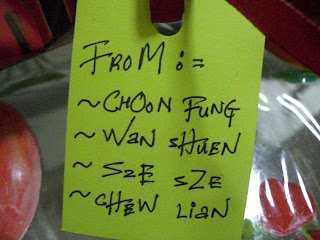 FROM :=
~CHOON FUNG
~WAN SHUEN
~SZE SZE
~CHEW LIAN